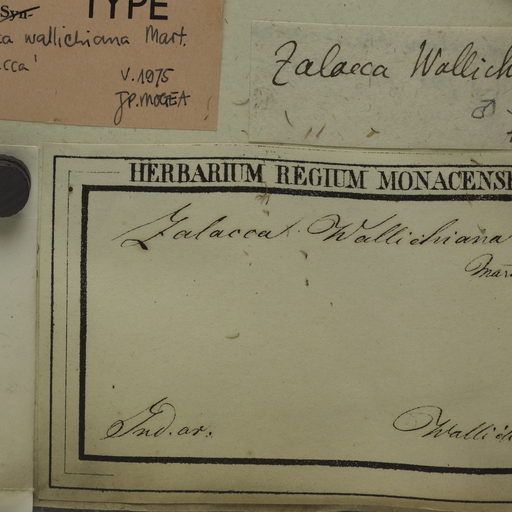 Syn- TYPE
ca wallichiana Mart.
acca'
V. 1975
J.P. MOGEA
Zalacca Wallich
♂
HERBARIUM REGIUM MONACENSE
Zalacca Wallichiana
Mart
Ind. or. Wallich